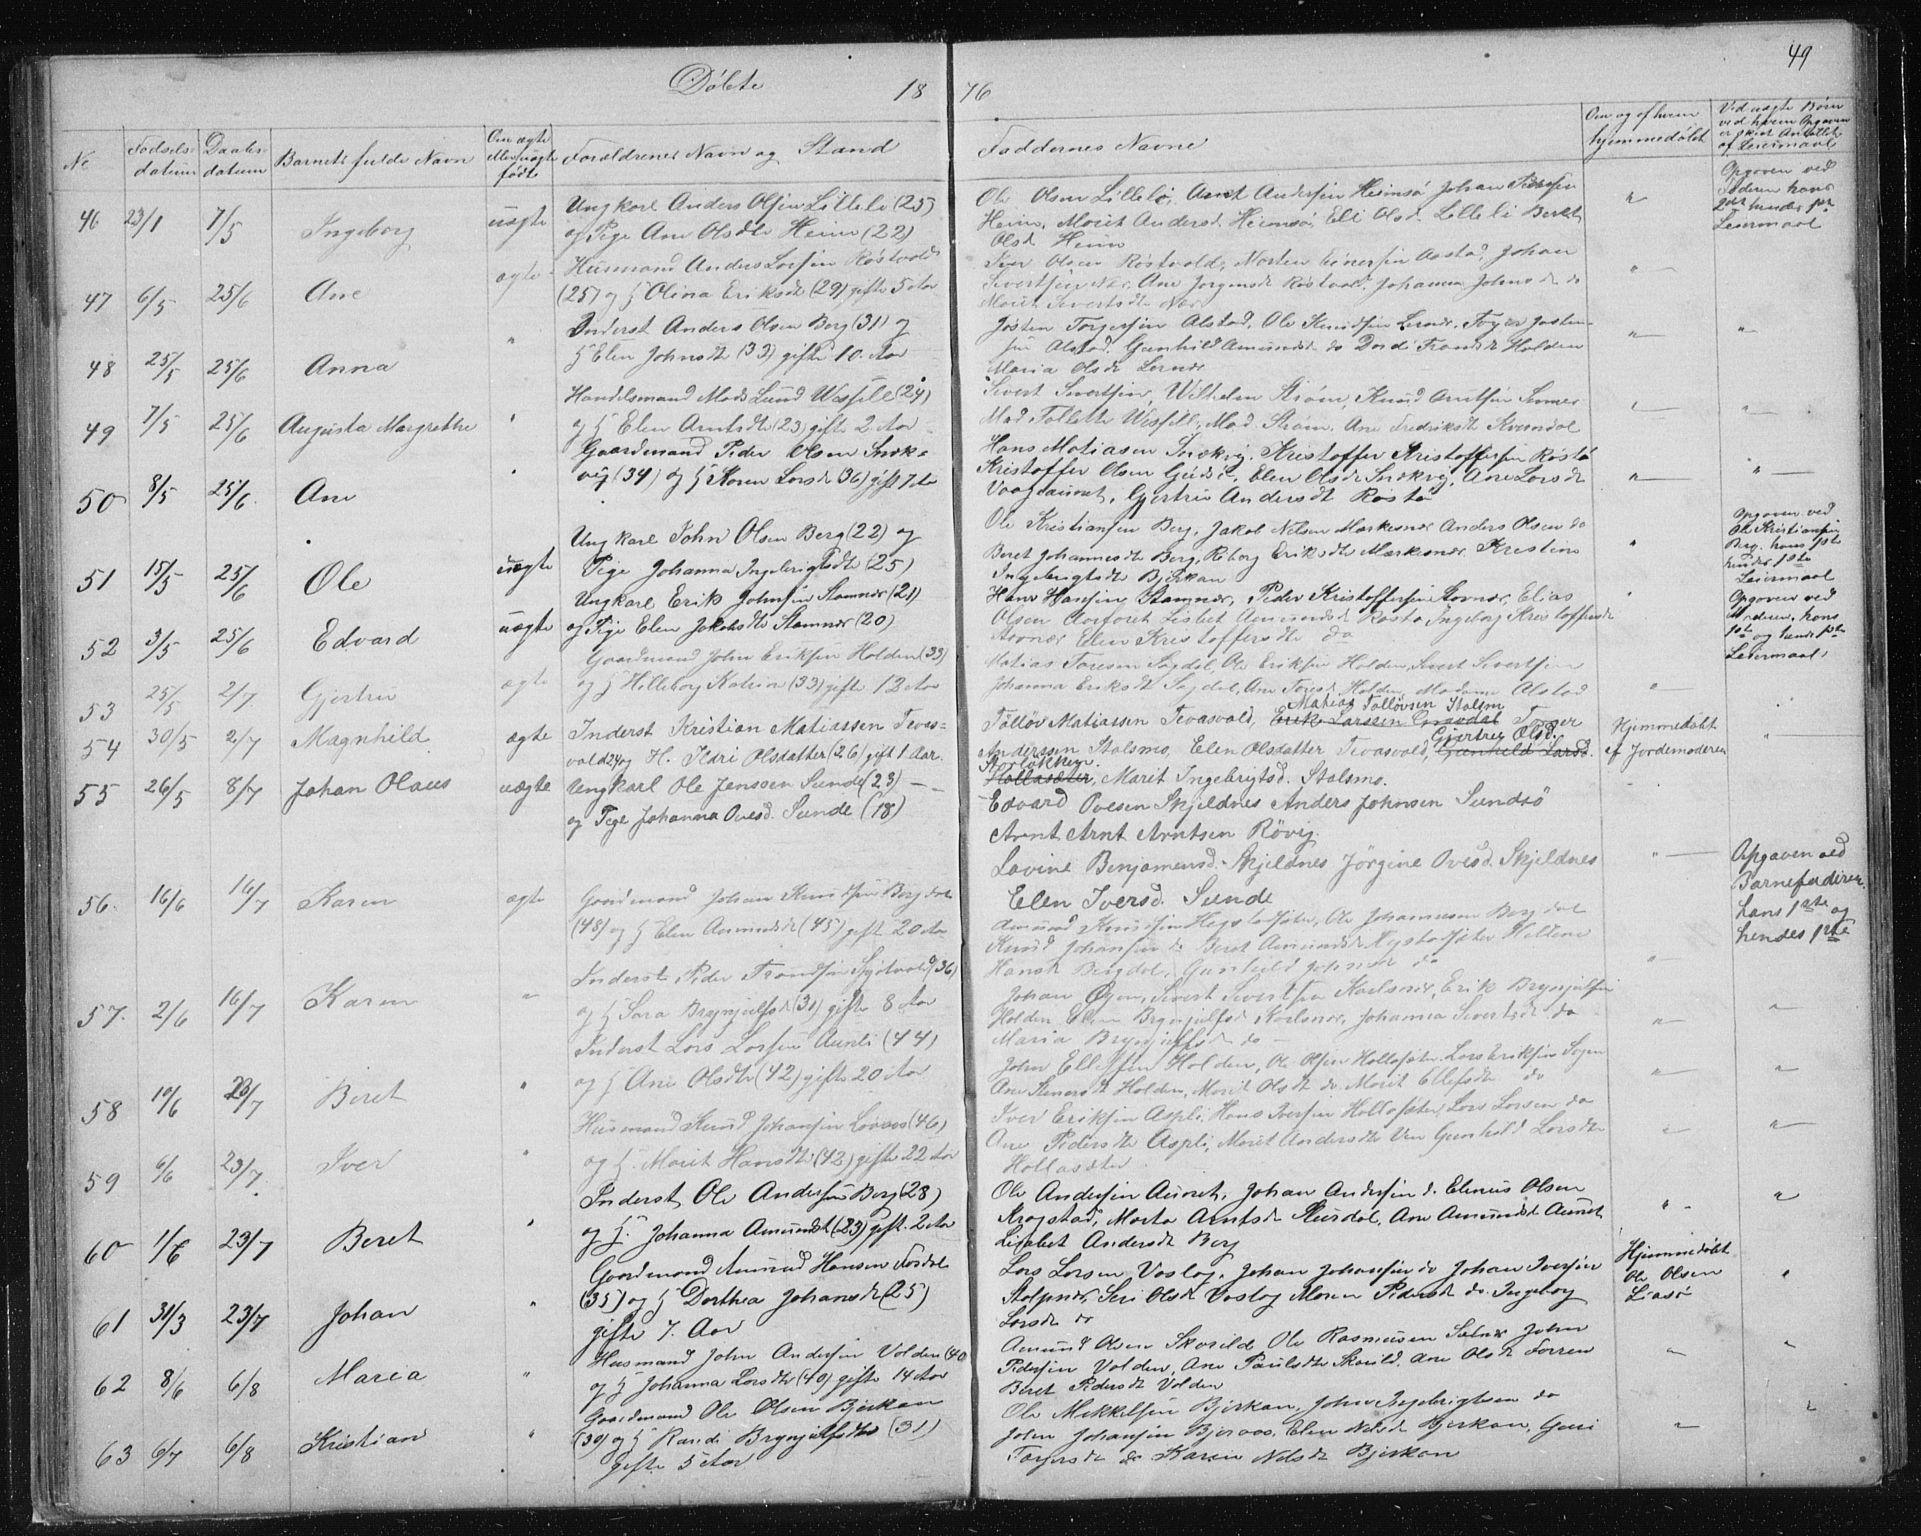 49
Døbte 18 76
No
Fødsels-
datum
Daabs-
datum
Barnets fulde Navn
Om ægte
eller uægte
født
Forældrenes Navn og Stand
Faddernes Navne
Om og af hvem
hjemmedøbt
Ved uægte Børn
ved hvem Opgaven
er skeet Antallet
af Leiermaal
46 23/1 7/5 Ingeborg uægte
Ungkarl Anders Olsen Lilleli (25)
og Pige Ane Olsdtr Heim (22)
Ole Olsen Lilleli, Arnt Andersen Heimsø Johan
Heim, Marit Andersd. Heimsø, Eli Olsd. Lilleli Beret
Olsd Heim
"
Opgaven ved
Faderen hans
2det hendes 1ste
Leiermaal
47 6/5 25/6 Ane ægte
Husmand Anders Larsen Røstvold
(25) og H Olina Eriksdt (29) gifte 5 Aar
Iver Olsen Røstvold, Morten Einersen Aasta, Johan
Sivertsen Nær, Ane Jørgensd Røstvold Johanna Johnsd do
Marit Sivertsdt Nær
"
48 25/5 25/6 Anna "
Inderst Anders Olsen Berg (31) og
H Elen Johnsdt (33) gifte 10 Aar
Jøsten Torgersen Alstad, Ole Knudsen Lernes, Torger Josten-
sen Alstad. Gunhild Amundsd do Dordi Trondsd Holden
Maria Olsd Lernes
" "
49 7/5 25/6 Augusta Margrethe "
Handelsmand Mads Lund Wesfell (24)
og H Elen Arntsdt (23) gifte 2 Aar
Sivert Sivertsen, Wilhelm Strøm, Knud Arntsen
Mad. Wesfell, Mad. Strøm, Ane Fredriksdt Kvendal
" "
50 8/5 25/6. Ane "
Gaardmand Peder Olsen Snek-
vig (34) og H Karen Larsd (36) gift 7 Aar
Hans Matiasen Snekvig, Kristoffer Kristoffersen Røstø
Kristoffer Olsen, Elen Olsd Snekvig, Ane Larsd
Vaagaunet, Gjertru Andersdt Røstø
" "
51 15/5 25/6 Ole uægte
Ungkarl John Olsen Berg (22) og
Pige Johanna Ingebrigtsdt (25)
Ole Kristiansen Berg, Jakob Nilsen Markesnes Anders Olsen do
Beret Johannesdt Berg, Eriksdt Markesnes, Kristine
Ingebrigtsdt Bjerkan
"
Opgaven ved
Ole Kristiansen
Berg. hans 1ste
hendes 1ste
Leiermaal
52 3/5 25/6 Edvard uægte
Ungkarl Erik Johnsen Stamnes (21)
og Pige Elen Jakobsdtr Stamnes (20)
Hans Hansen Stamnes, Peder Kristoffersen Stornes, Elias
Olsen Lisbet Amundsd Røstø Ingeborg Kristoffersd
Elen Kristoffersdt do
"
Opgaven ved
Moderen, hans
1ste og hendes 1ste
Leiermaal
53 25/5 2/7 Gjertru ægte
Gaardmand John Eriksen Holden (33)
og H Hilleborg Katrin (33) gifte 12 Aar
Matias Toresen Sagdal, Ole Eriksen Holden, Sivert Sivertsen
Johanna Eriksdt Sagdal, Ane Toresd Holden Madame Alstad
"
54 30/5 2/7 Magnhild. ægte
Inderst Kristian Matiassen Tevas-
vold 24 og H. Ildri Olsdatter (26) gift 1 Aar.
Matias Tolløvsen Stalsm
Tolløv Matiassen Tevasvold, Erik Larssen Grøvdal Torger
Gjertru Olsd.
Anderssen Stalsmo, Elen Olsdatter Tevasvold, Gunhild Larsd.
Storløkken.
Hollasæter, Marit Ingebrigtsd. Stalsmo.
Hjemmedøbt
af Jordemoderen
"
55 26/5 8/7 Johan Olaus uægte
Ungkarl Ole Jenssen Sunde (23)
og Pige Johanna Ovesd. Sunde (18)
Edvard Ovesen Skjeldnes Anders Johnsen Sundsø
Arent Arnt Arntsen Røvig.
Lavine Benjamensd. Skjeldnes Jørgine Ovesd. Skjeldnes
Elen Iversd. Sunde
"
Opgaven ved
Barnefaderen.
hans 1ste og
hendes 1ste
56. 16/6 16/7 Karen ægte
Gaardmand Johan Knudsen Bergdal
(48) og H Elen Amundsd (45) gift 20 Aar
Amund Knudsen Hegstadsæter, Ole Johannesen Bergdal
Knud Johansen do Beret Amundsd Hegstadsæter Hellena
Hansd Bergdal, Gunhild Johnsd do
"
57. 2/6 16/7 Karen "
Inderst Peder Trondsen (36)
og H Sara Brynjulfsd (31) gifte 8 Aar
Johan Øyen, Sivert Sivertsen Karlsnes, Erik Brynjulfsen
Holden Elen Brynjulfsd Karlsnes, Johanna Sivertsdt do
Maria Brynjulfsd do
" "
58 10/6 23/7 Beret "
Inderst Lars Larsen Aunli (44)
og H Ane Olsdtr (42) gifte 20 Aar
John Ellefsen Holden, Ole Olsen Hollasæter. Lars Eriksen
Ane Steinersdt Holden, Marit Olsdt do Marit Ellefsdt do
" "
59 6/6 23/7. Iver "
Husmand Knud Johansen (46)
og H. Marit Hansdt (42) gifte 22 Aar
Iver Eriksen Aspli, Hans Iversen Hollasæter, Lars Larsen do
Ane Pedersdtr Aspli, Marit Andersdtr Gunhild Larsdtr
Hollasæter
" "
60 1/6 23/7 Beret "
Inderst Ole Andersen Berg (28)
og H. Johanna Amundsdt (23) gift. 2 Aar
Ole Andersen Aunet, Johan Andersen do. Elenus Olsen
Krogstad, Marta Arntsd Ane Amundsd Aunet
Lisabet Andersdt Berg
" "
61 31/3 23/7 Johan "
Gaardmand Amund Hansen
(35) og H Dorthea Johansd (25)
gifte 7. Aar
Lars Larsen Vaslag, Johan Johansen do Johan Iversen
Stolpnes, Seri Olsd Vaslag Maren Pedersd do. Ingeborg
Larsdt do
Hjemmedøbt
Ole Olsen
Liasø
"
62 8/6 6/8 Marea "
Husmand John Andersen Volden (40
og H Johanna Larsdtr (40) gifte 14 Aar
Amund Olsen Skarild Ole Rasmusen John
Pedersen Volden, Ane Paulsdtr Skarild. Ane Olsdt Forren
Beret Pedersdt Volden
" "
63 6/7 6/8 Kristian "
Gaardmand Ole Olsen Bjerkan
(30) og H Randi Brynjulfsdtr (31)
gifte 5 Aar
Ole Mekkelsen Bjerkan, John Ingebrigtsen do
John Johansen Bjeraas, Elen Nelsd Bjerkan, Guri
Torgersdt do Karen Nelsdt Bjerkan
" "